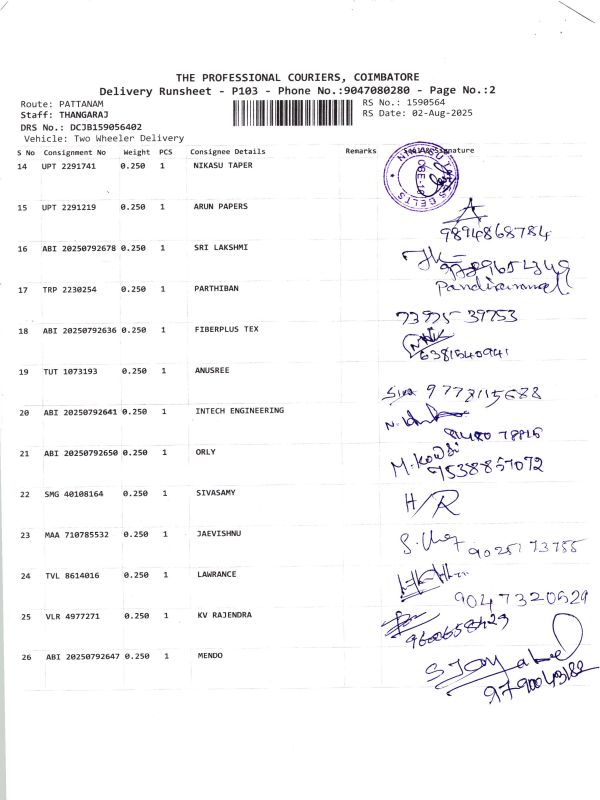 THE PROFESSIONAL COURIERS, COIMBATORE
Delivery Runsheet - P103 - Phone No.:9047080280 - Page No.:2
Route: PATTANAM RS No.: 1590564
Staff: THANGARAJ RS Date: 02-Aug-2025
DRS No.: DCJB159056402
Vehicle: Two Wheeler Delivery
S No Consignment No Weight PCS Consignee Details Remarks Signature
14 UPT 2291741 0.250 1 NIKASU TAPER
15 UPT 2291219 0.250 1 ARUN PAPERS
9894868784
16 ABI 20250792678 0.250 1 SRI LAKSHMI
17 TRP 2230254 0.250 1 PARTHIBAN
73975 39753
18 ABI 20250792636 0.250 1 FIBERPLUS TEX
6381540941
19 TUT 1073193 0.250 1 ANUSREE
20 ABI 20250792641 0.250 1 INTECH ENGINEERING
21 ABI 20250792650 0.250 1 ORLY
9538857072
22 SMG 40108164 0.250 1 SIVASAMY
H/R
23 MAA 710785532 0.250 1 JAEVISHNU
24 TVL 8614016 0.250 1 LAWRANCE
9047320529
25 VLR 4977271 0.250 1 KV RAJENDRA
9600658429
26 ABI 20250792647 0.250 1 MENDO